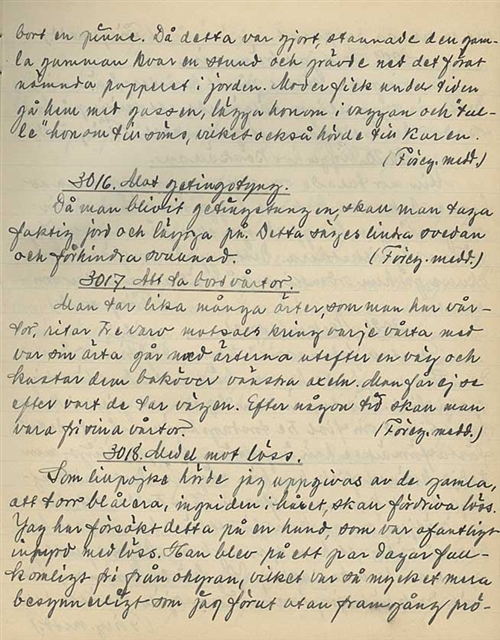 bort en pinne. Då detta var gjort, stannade den gam-
la gumman kvar en stund och grävde ned det förut
nämnda papperet i jorden. Moder fick under tiden
gå hem med gossen, lägga honom i vaggan och "tul-
le" honom till söms, vilket också hörde till kuren.
(Förey. medd.)
3016. Mot getingstyng.
Då man blivit getingstungen, skall man taga
fuktig jord och lägga på. Detta säges lindra svedan
och förhindra svullnad. (Förey. medd.)
3017. Att ta bort vårtor.
Man tar lika många ärter, som man har vår-
tor, ritar tre varv motsols kring varje vårta med
var sin ärta går med ärterna utefter en väg och
kastar dem bakåt över vänstra axeln. Man får ej se
efter vart de tar vägen. Efter någon tid skall man
vara fri sina vårtor. (Förey. medd.)
3018. Medel mot löss.
Som liten pojke hörde jag uppgivas av de gamla,
att torr blålera, ingniden i håret, skall fördriva löss.
Jag har försökt detta på en hund, som var ofantligt
med löss. Han blev på ett par dagar full-
komligt fri från ohyran, vilket var så mycket mera
besynnerligt som jag förut utan framgång prö-